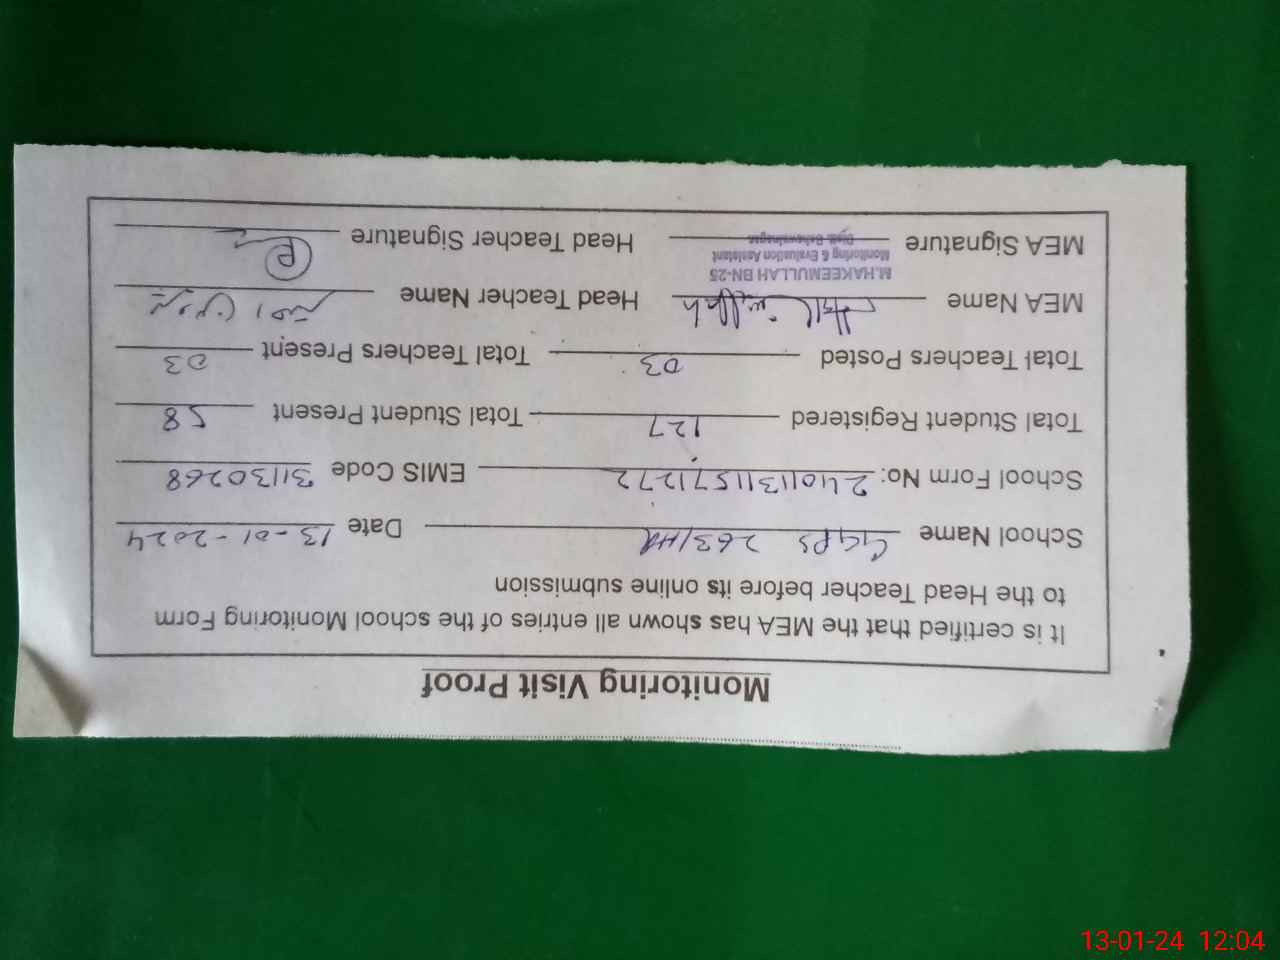 Monitoring Visit Proof
It is certified that the MEA has shown all entries of the school Monitoring Form
to the Head Teacher before its online submission
School Name GGPS 263/HR Date 13-01-2024
School Form No: 24011311571272 EMIS Code 31130268
Total Student Registered 127 Total Student Present 58
Total Teachers Posted 03 Total Teachers Present 03
MEA Name Head Teacher Name
M.HAKEEMULLAH BN-25
Monitoring & Evaluation Assistant
Distt. Bahawalnagar
MEA Signature Head Teacher Signature
13-01-24 12:04